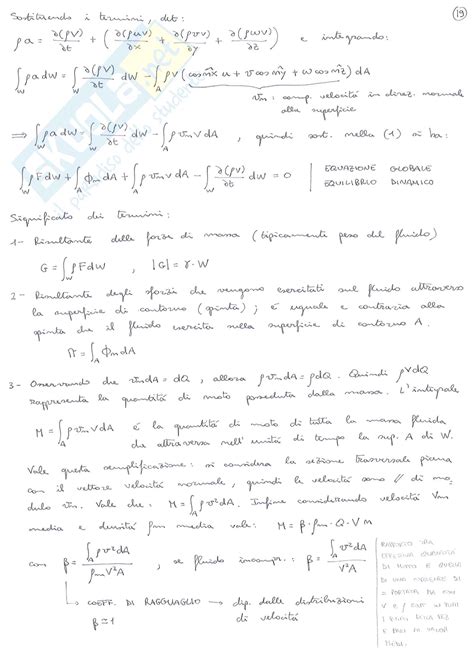 19
Sostituendo i termini, det:
ρa = ∂(ρV)/∂t + (∂(ρuV)/∂x + ∂(ρvV)/∂y + ∂(ρwV)/∂z) e integrando:
∫_W ρa dW = ∫_W ∂(ρV)/∂t dW - ∫_A ρV (cos n̂x u + v cos n̂y + w cos n̂z) dA
vn: comp. velocità in direz. normale
alla superficie
⇒ ∫_W ρa dW - ∫_W ∂(ρV)/∂t dW - ∫_A ρ vn V dA, quindi sost. nella (1) si ha:
∫_W ρF dW + ∫_A Φn dA + ∫_A ρ vn V dA - ∫_W ∂(ρV)/∂t dW = 0 | EQUAZIONE GLOBALE
EQUILIBRIO DINAMICO
Significato dei termini:
1- Risultante delle forze di massa (tipicamente peso del fluido)
G = ∫_W ρF dW , |G| = γ·W
2- Risultante degli sforzi che vengono esercitati sul fluido attraverso
la superficie di contorno (spinta); è uguale e contraria alla
spinta che il fluido esercita sulla superficie di contorno A.
Π = ∫_A Φn dA
3- Osservando che vn dA = dQ, allora ρ vn dA = ρdQ. Quindi ρVdQ
rappresenta la quantità di moto posseduta dalla massa. L'integrale
M = ∫_A ρ vn V dA è la quantità di moto di tutta la massa fluida
che attraversa nell'unità di tempo la sup. A di W.
Vale questa semplificazione: si considera la sezione trasversale piana
con il vettore velocità normale, quindi le velocità sono // di mo-
dulo vn. Vale che: M = ∫_A ρv²dA. Infine considerando velocità Vm
media e densità ρm media vale: M = β·ρm·Q·Vm
con β = ∫_A ρv²dA / ρm V²A , se fluido incompr.: β = ∫_A v²dA / V²A
↳ COEFF. DI RAGGUAGLIO → dip. dalle distribuzioni
β ≅ 1 di velocità
RAPPORTO TRA
EFFETTIVA QUANTITÀ
DI MOTO E QUELLO
DI UNA CORRENTE DI
= PORTATA